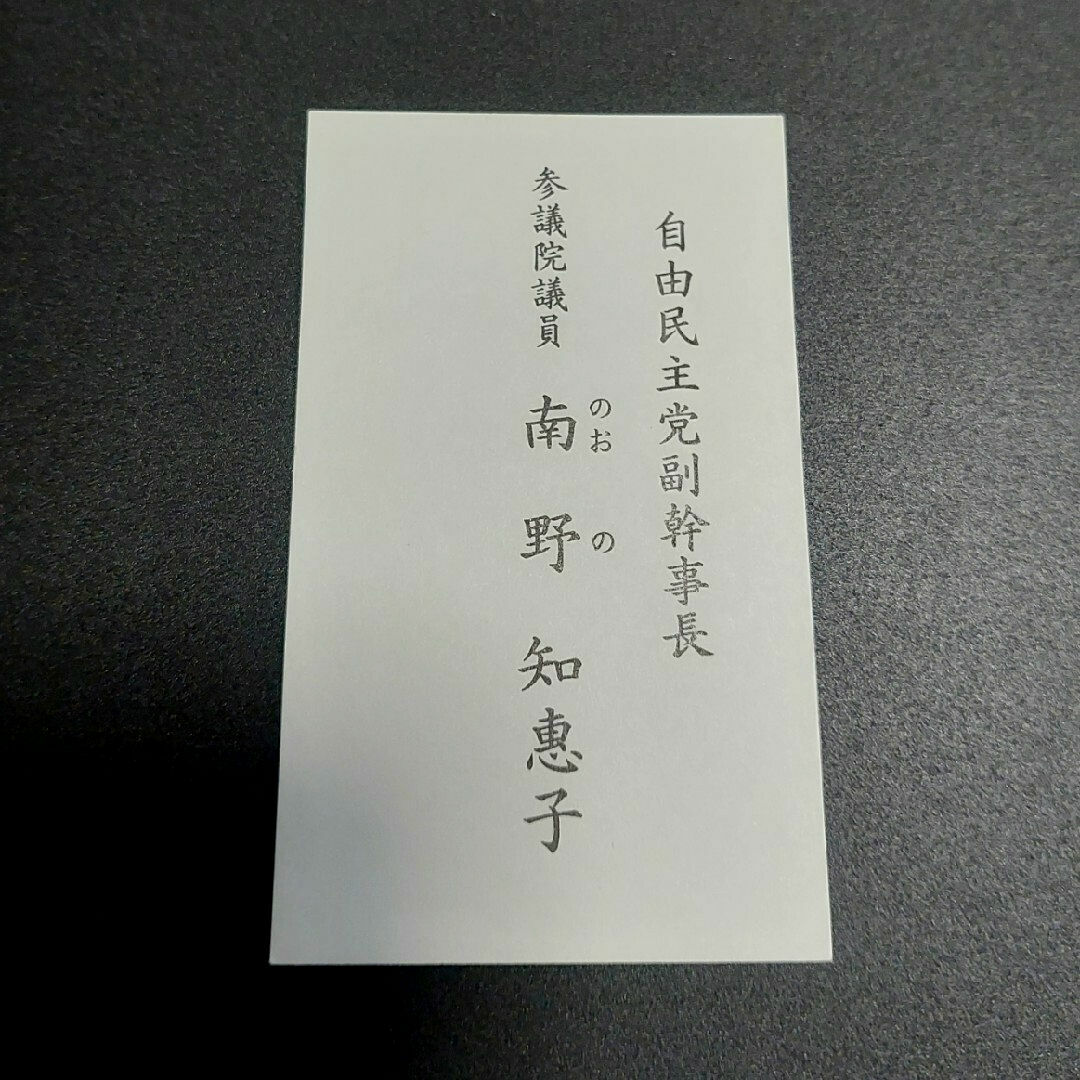 自由民主党副幹事長
参議院議員 南野 知惠子
のおの